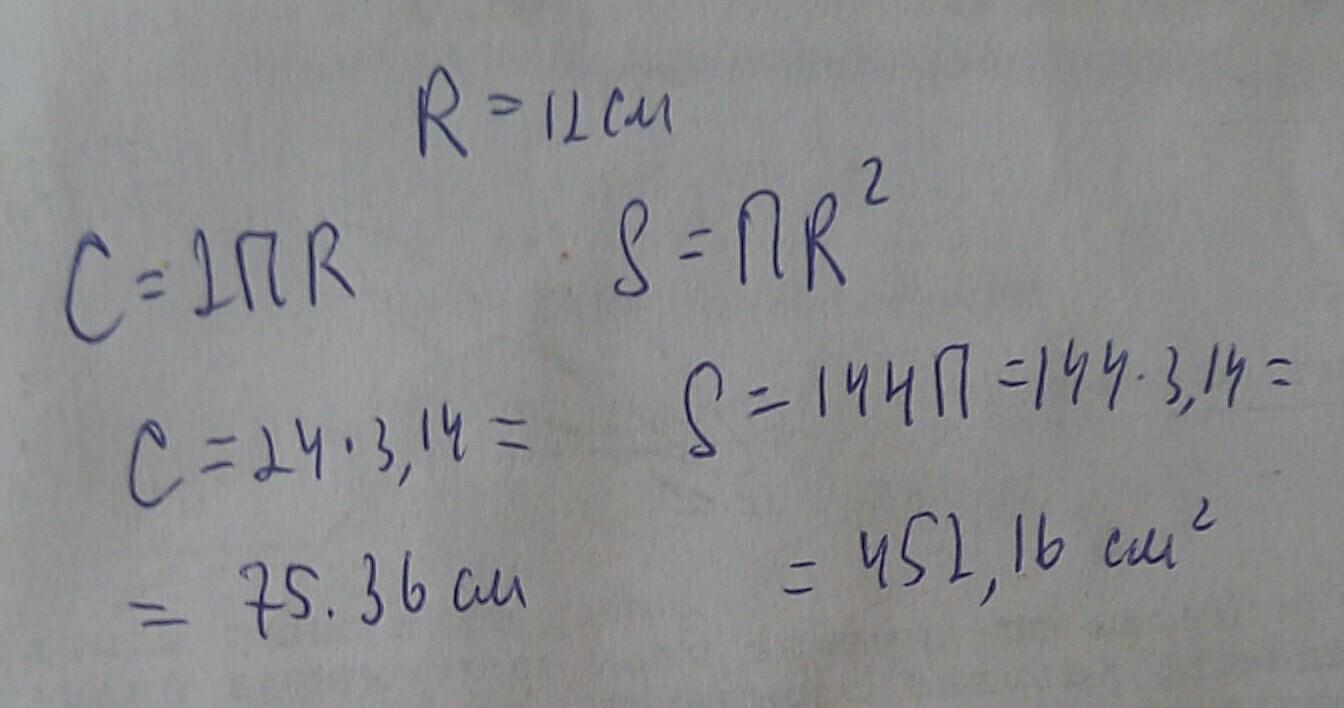 R = 12 см
C = 2ПR
S = ПR²
C = 24 · 3,14 =
= 75.36 см
S = 144П = 144 · 3,14 =
= 452,16 см²